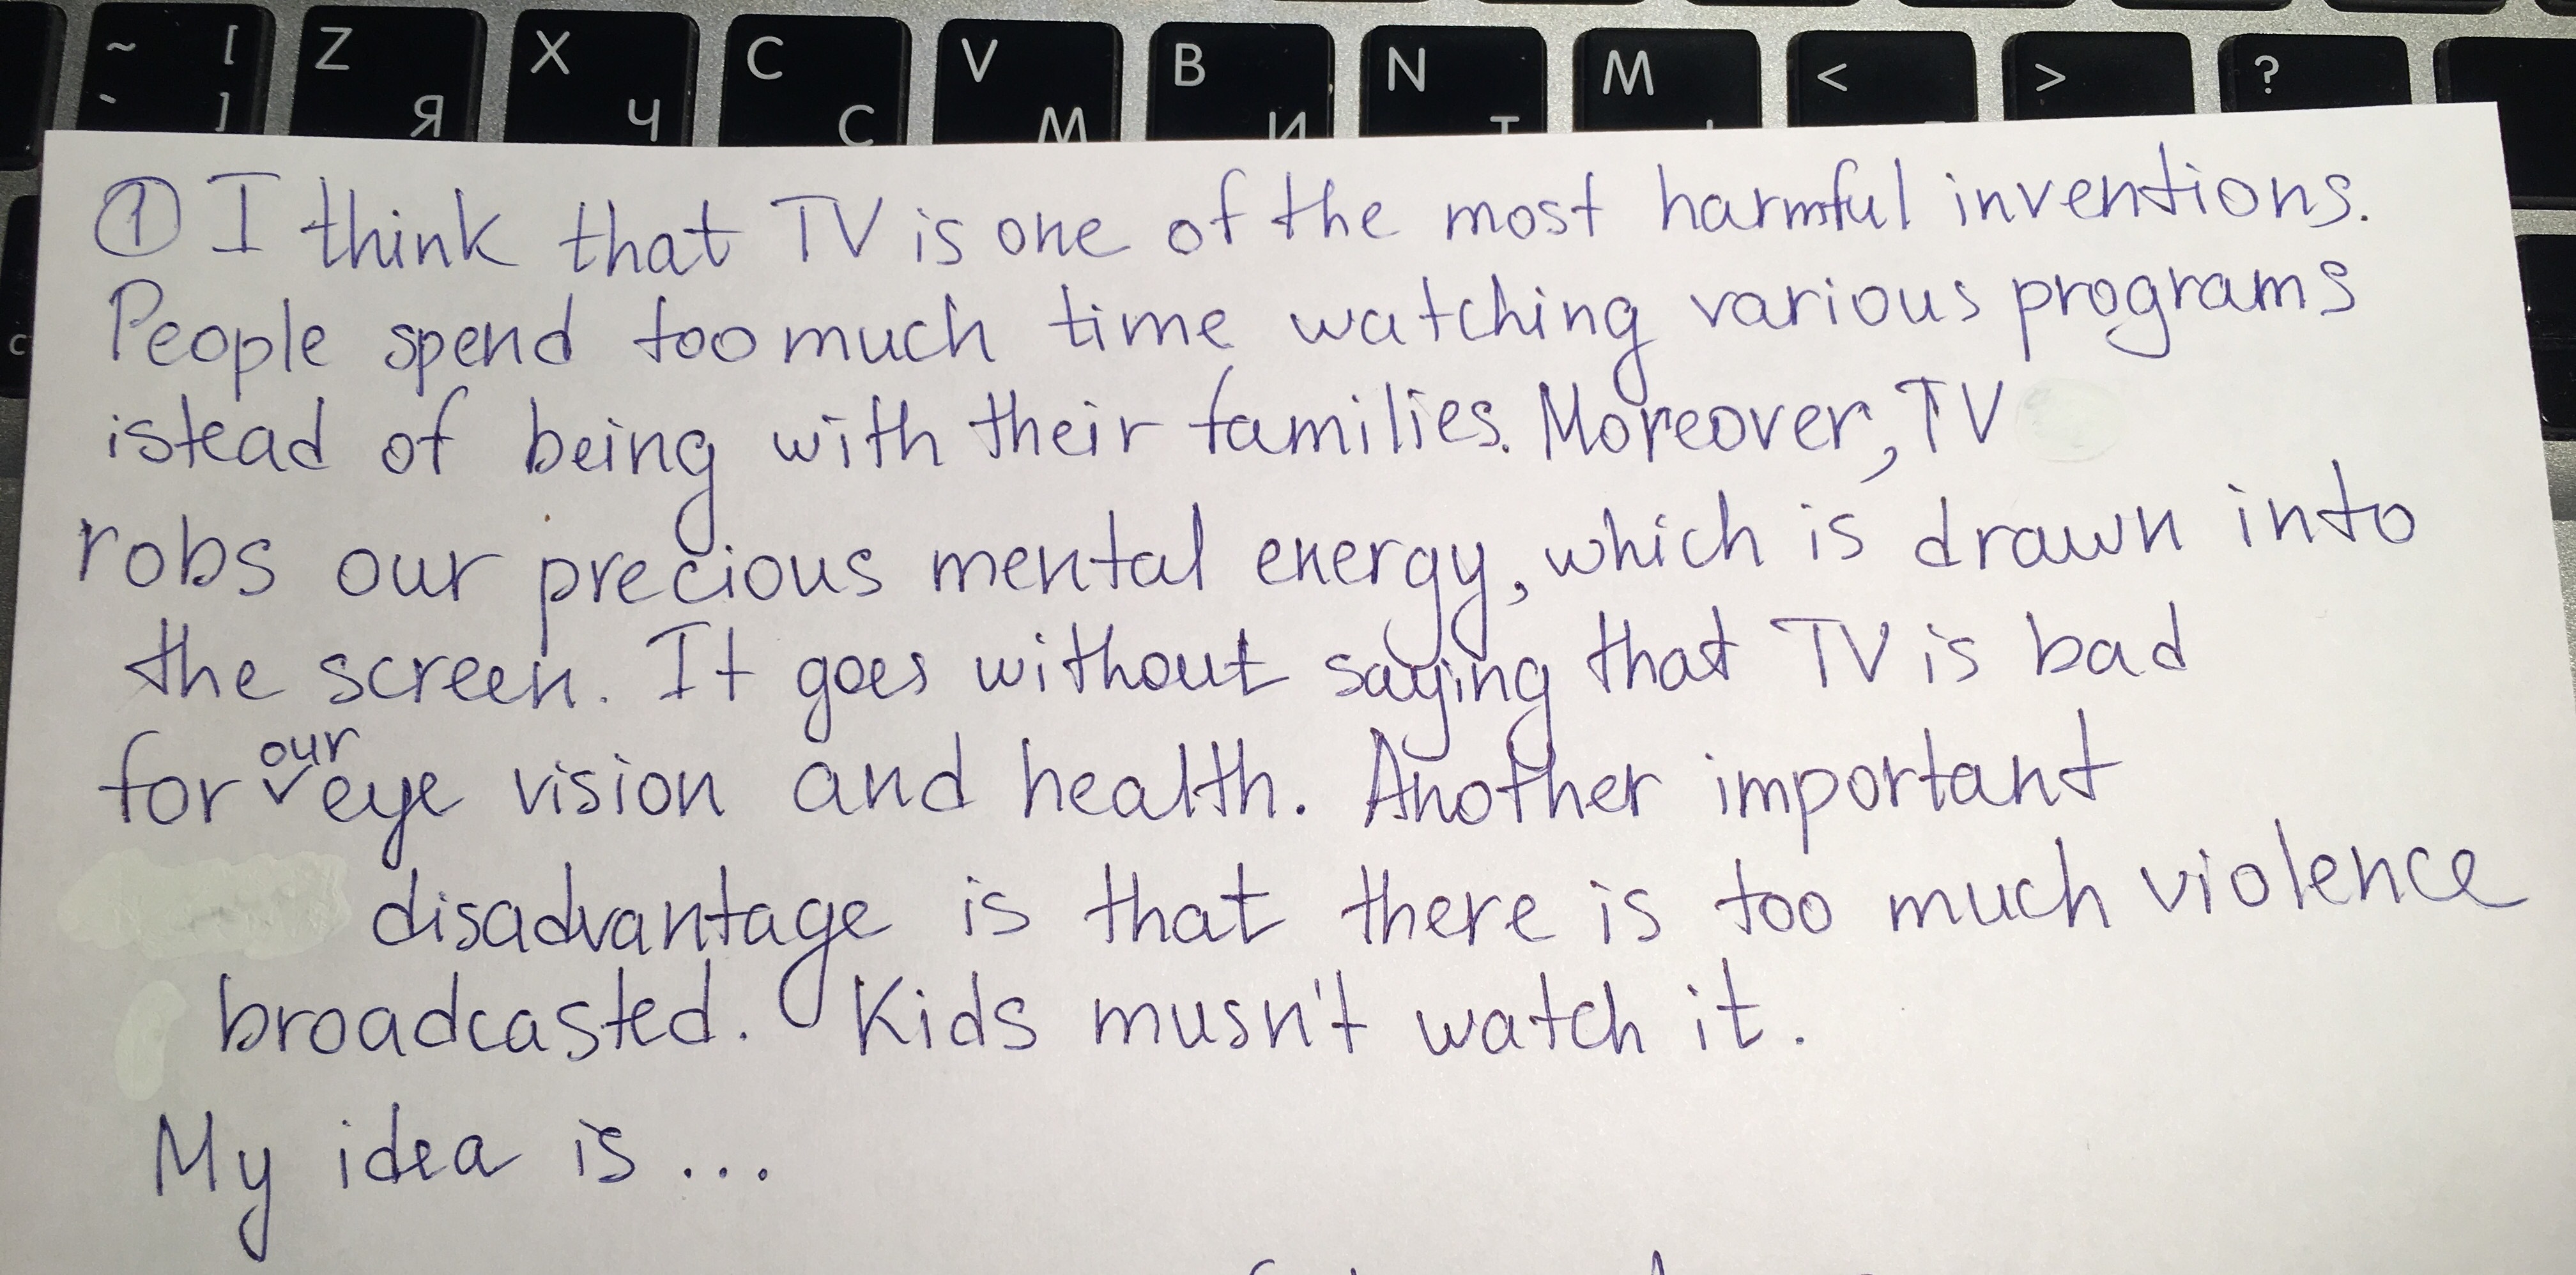 ~ [ Z X C V B N M < > ?
` ] Я Ч С М И Т
① I think that TV is one of the most harmful inventions.
People spend too much time watching various programs
istead of being with their families. Moreover, TV
robs our precious mental energy, which is drawn into
the screen. It goes without saying that TV is bad
for our eye vision and health. Another important
disadvantage is that there is too much violence
broadcasted. Kids musn't watch it.
My idea is ...